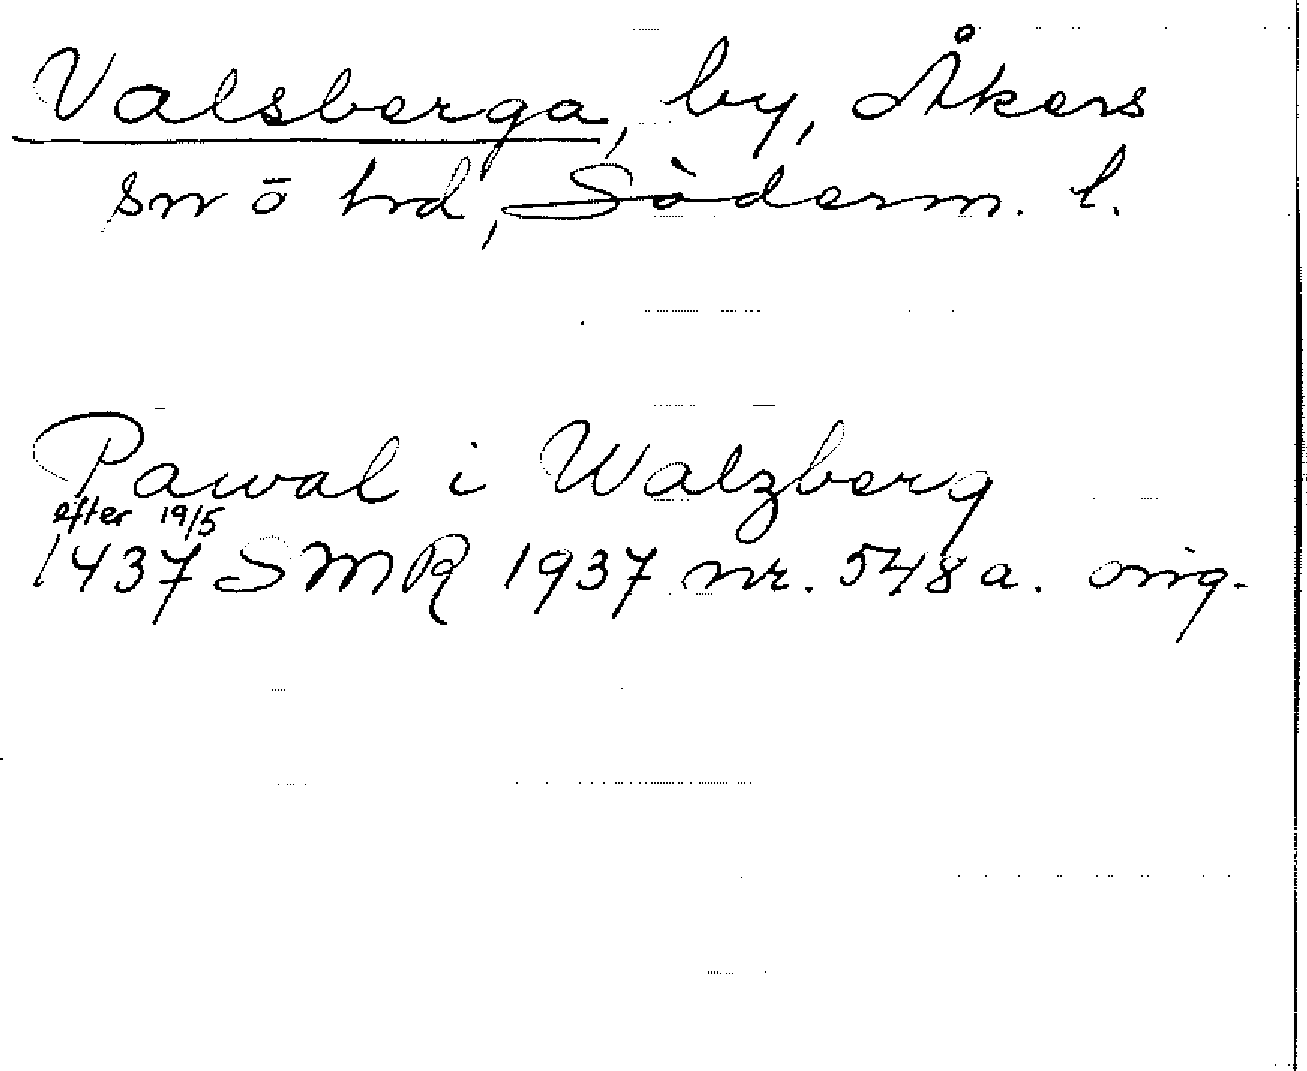 Valsberga, by, Åkers
sn o hd, Söderm. l.
Pawal i Walzberg
efter 19/5
1437 SMR 1937 nr. 548a. orig.